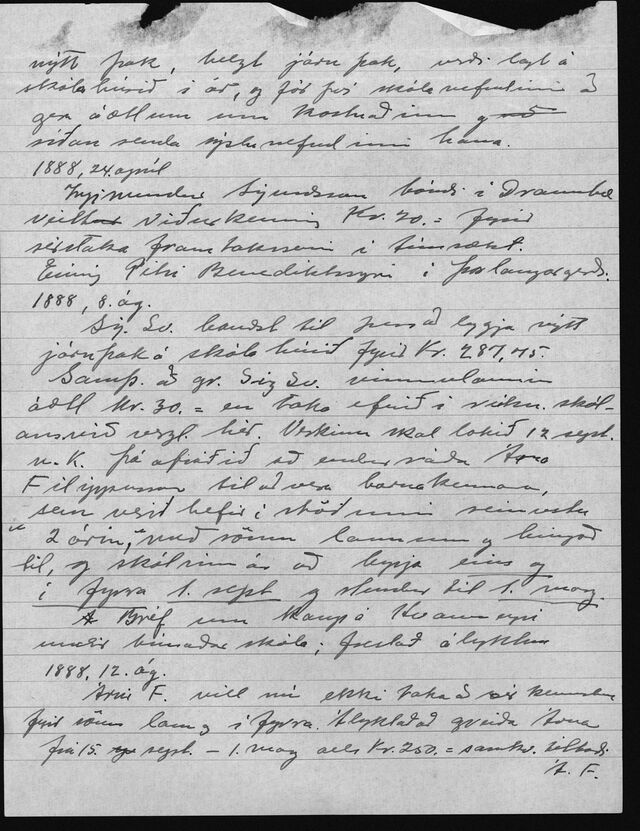 nýtt þak, helzt járnþak, verði lagt á
skólahúsið í ár, og fór frá skólanefndinni að
gera áætlun um kostnaðinn og
síðan senda sýslunefndinni hana.
1888, 24. apríl
Ingimundur Sigurðsson bóndi í Drambæ
veittar viðurkenning Kr. 20.= fyrir
sérstaka framtakssemi í túnrækt.
Einnig Pétri Benediktssyni í Þorlaugargerði.
1888, 8. ág.
Sig. Sv. bauðst til þess að leggja nýtt
járnþak á skólahúsið fyrir Kr. 287,75.
Samþ. að gr. Sig Sv. vinnulaunin
áætl Kr. 30.= en taka efnið í reikn. skól-
ans við verzl. hér. Verkinu skal lokið 12 sept.
n.k. Þá afráðið að endurráða Árna
Filippusson til að vera barnakennara,
sem verið hefir í stöðunni seinustu
"2 árin," með sömu launum og hingað
til, og skólinn á að byrja eins og
í fyrra 1. sept og stendur til 1. maí.
Bréf um kaup á Hvanneyri
undir búnaðarskóla; frestað ályktun
1888, 12. ág.
Árni F. vill nú ekki taka að sér kennsluna
fyrir sömu laun og í fyrra. Ályktað að greiða Árna
frá 15. sept. – 1. maí alls Kr. 250.= samkv. tilboði
Á. F.